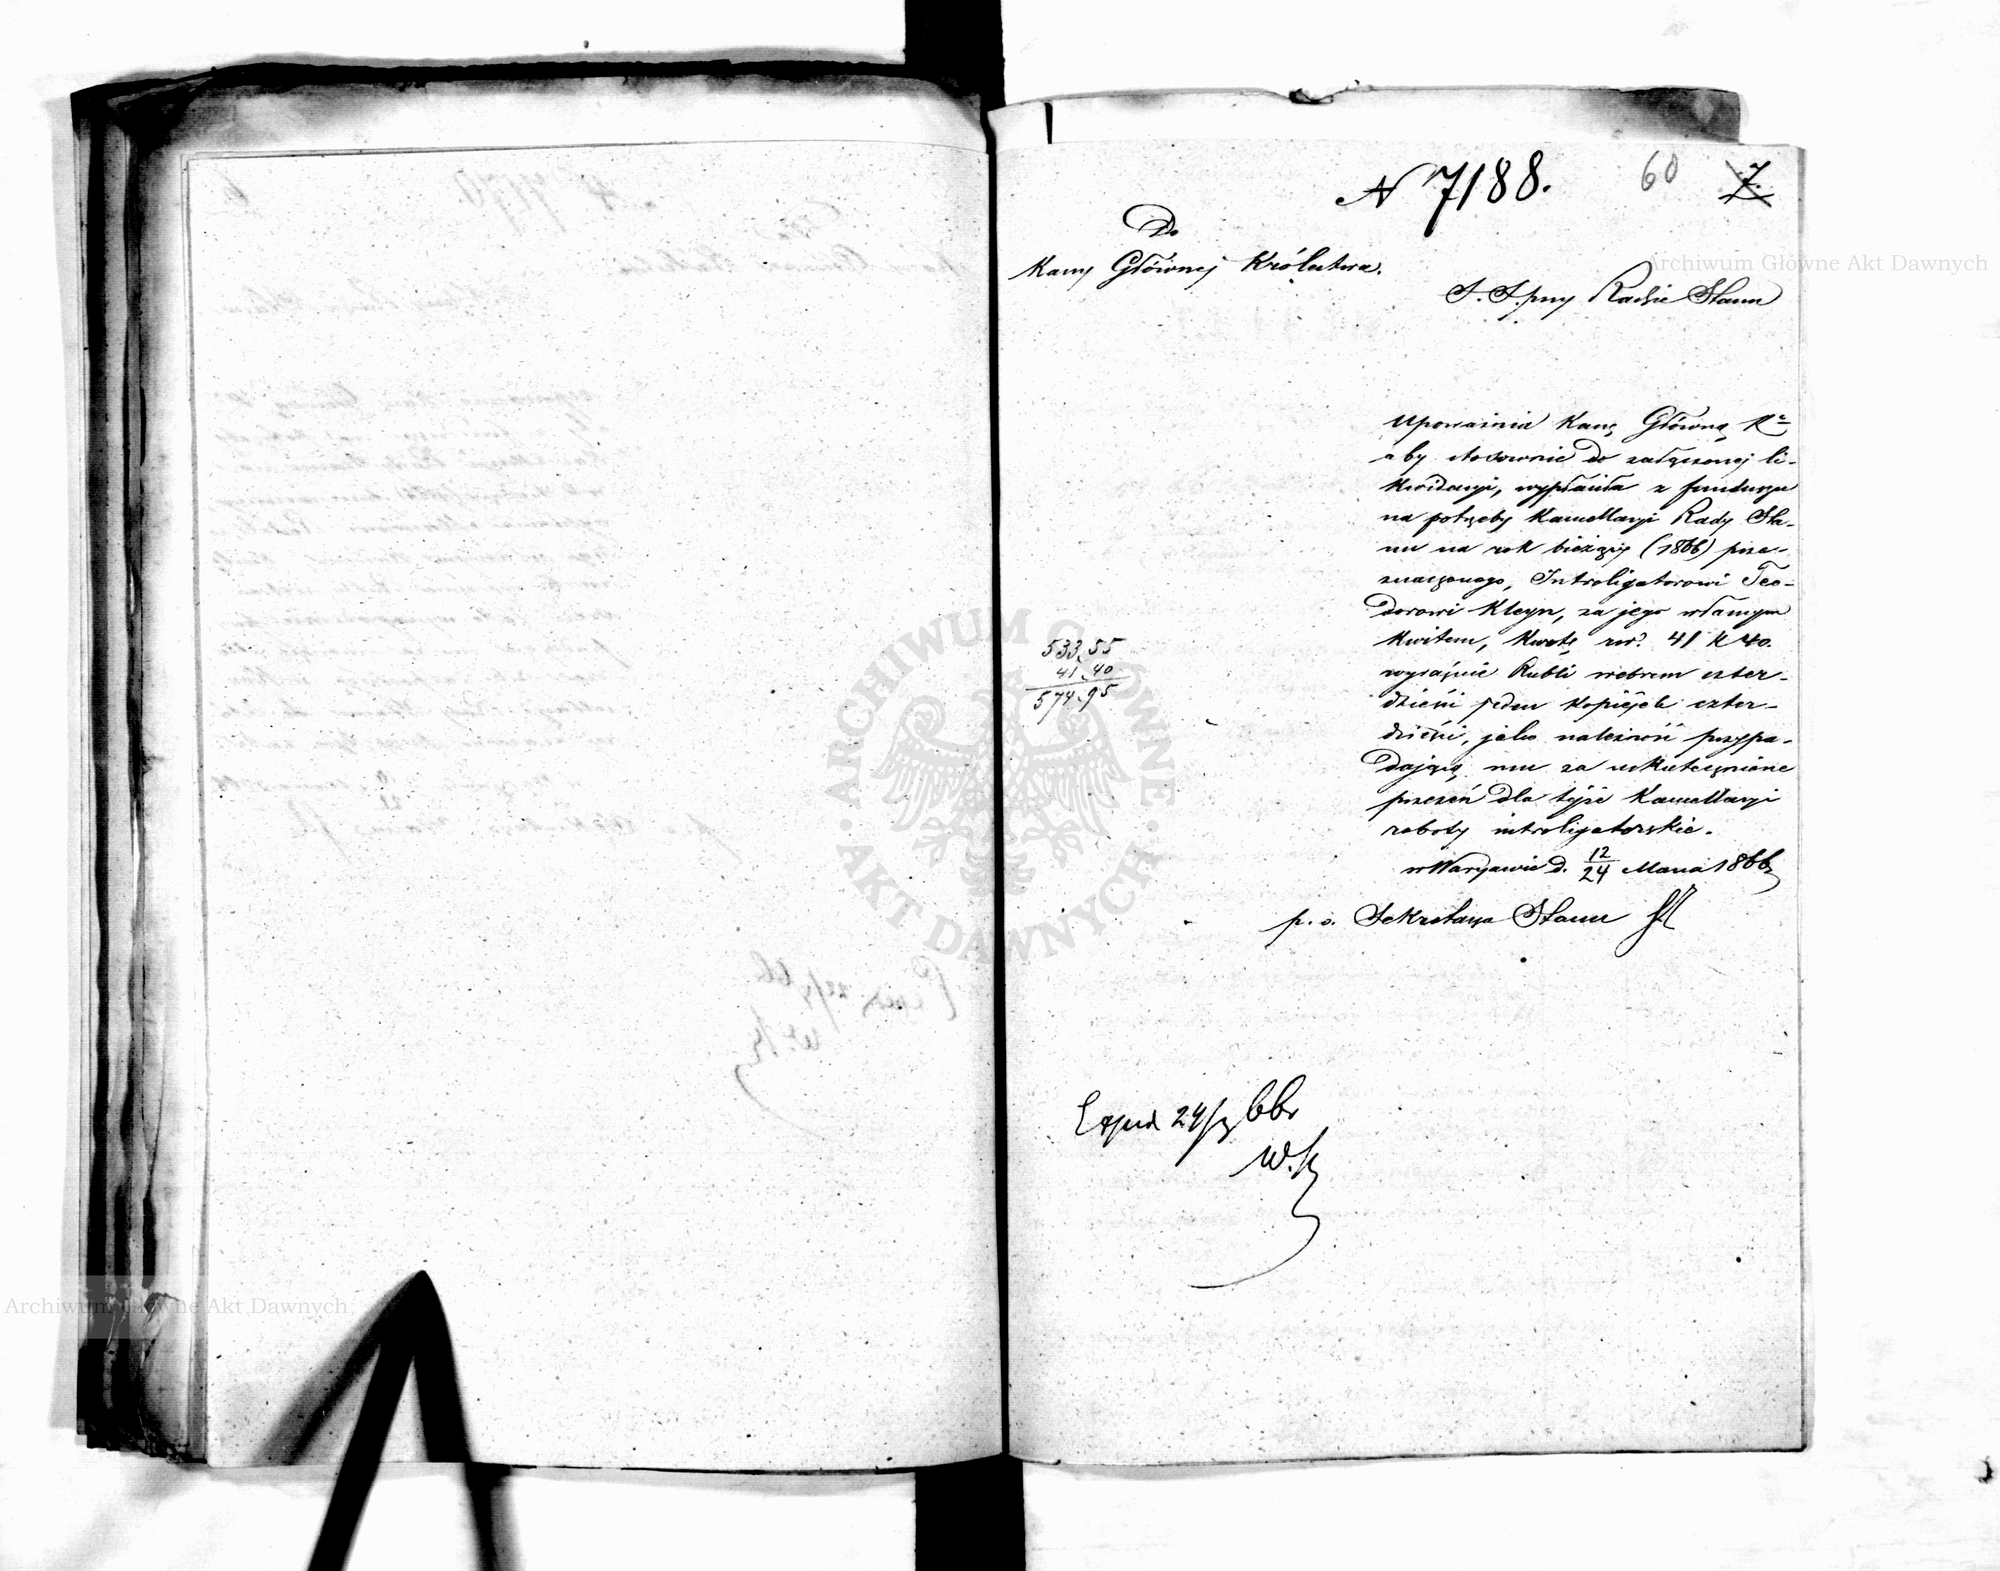 N 7188.
60
7.
Do
Kassy Głównej Królestwa.
S. S. przy Radzie Stanu
Upoważnia Kassę Główną Kr
aby stosownie do załączonej li-
kwidacyi, wypłaciła z funduszu
na potrzeby Kancellaryi Rady Sta-
nu na rok bieżący (1866) prze-
znaczonego, Introligatorowi Teo-
dorowi Kleyn, za jego własnym
kwitem, kwotę rsr. 41 k 40.
wyraźnie Rubli srebrem czter-
dzieści jeden kopiejek czter-
dzieści, jako należność przypa-
dającą mu za uskutecznione
przezeń dla tejże Kancellaryi
roboty introligatorskie.
w Warszawie d. 12/24 Marca 1866
p. o. Sekretarza Stanu
533,55
41,40
574,95
Exped 24/3 66r
W. K
ARCHIWUM GŁÓWNE
AKT DAWNYCH
Archiwum Główne Akt Dawnych
Archiwum Główne Akt Dawnych